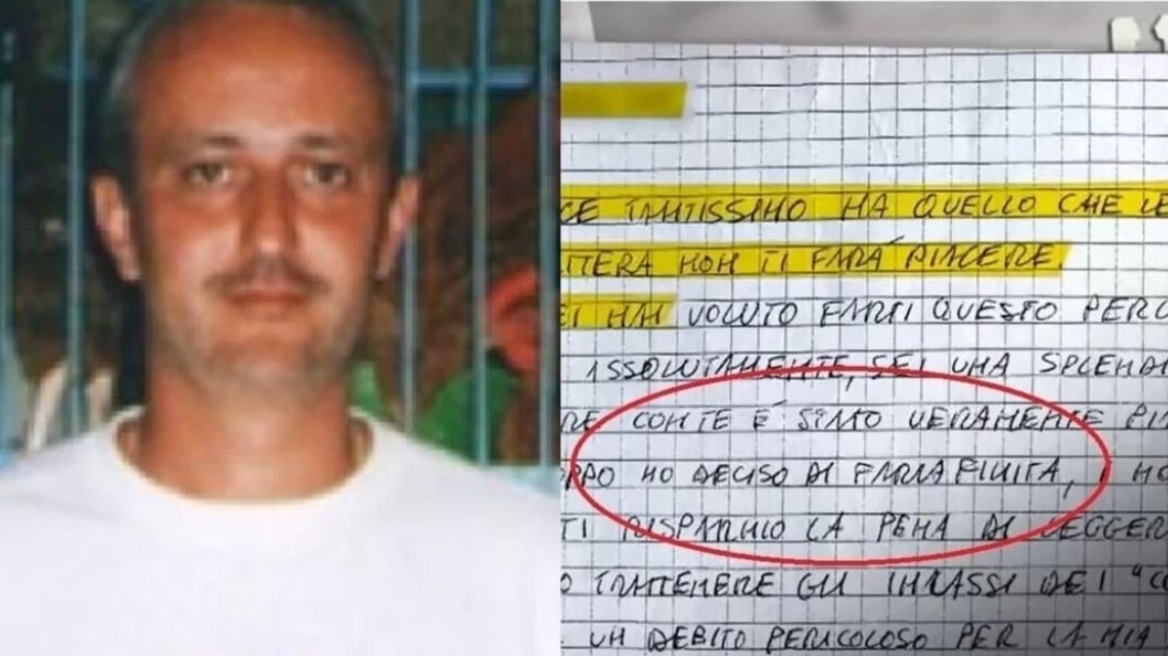 CE TANTISSIMO HA QUELLO CHE LE
TTERA NON TI FARÀ PIACERE
EI HAI VOLUTO FARTI QUESTO PERC
ASSOLUTAMENTE, SEI UNA SPLENDI
RE CON TE É STATO VERAMENTE PI
OPPO HO DECISO DI FARLA FINITA,
TI RISPARMIO LA PENA DI LEGGER
O TRATTENERE GLI INCASSI DEI "CO
UN DEBITO PERICOLOSO PER LA MIA